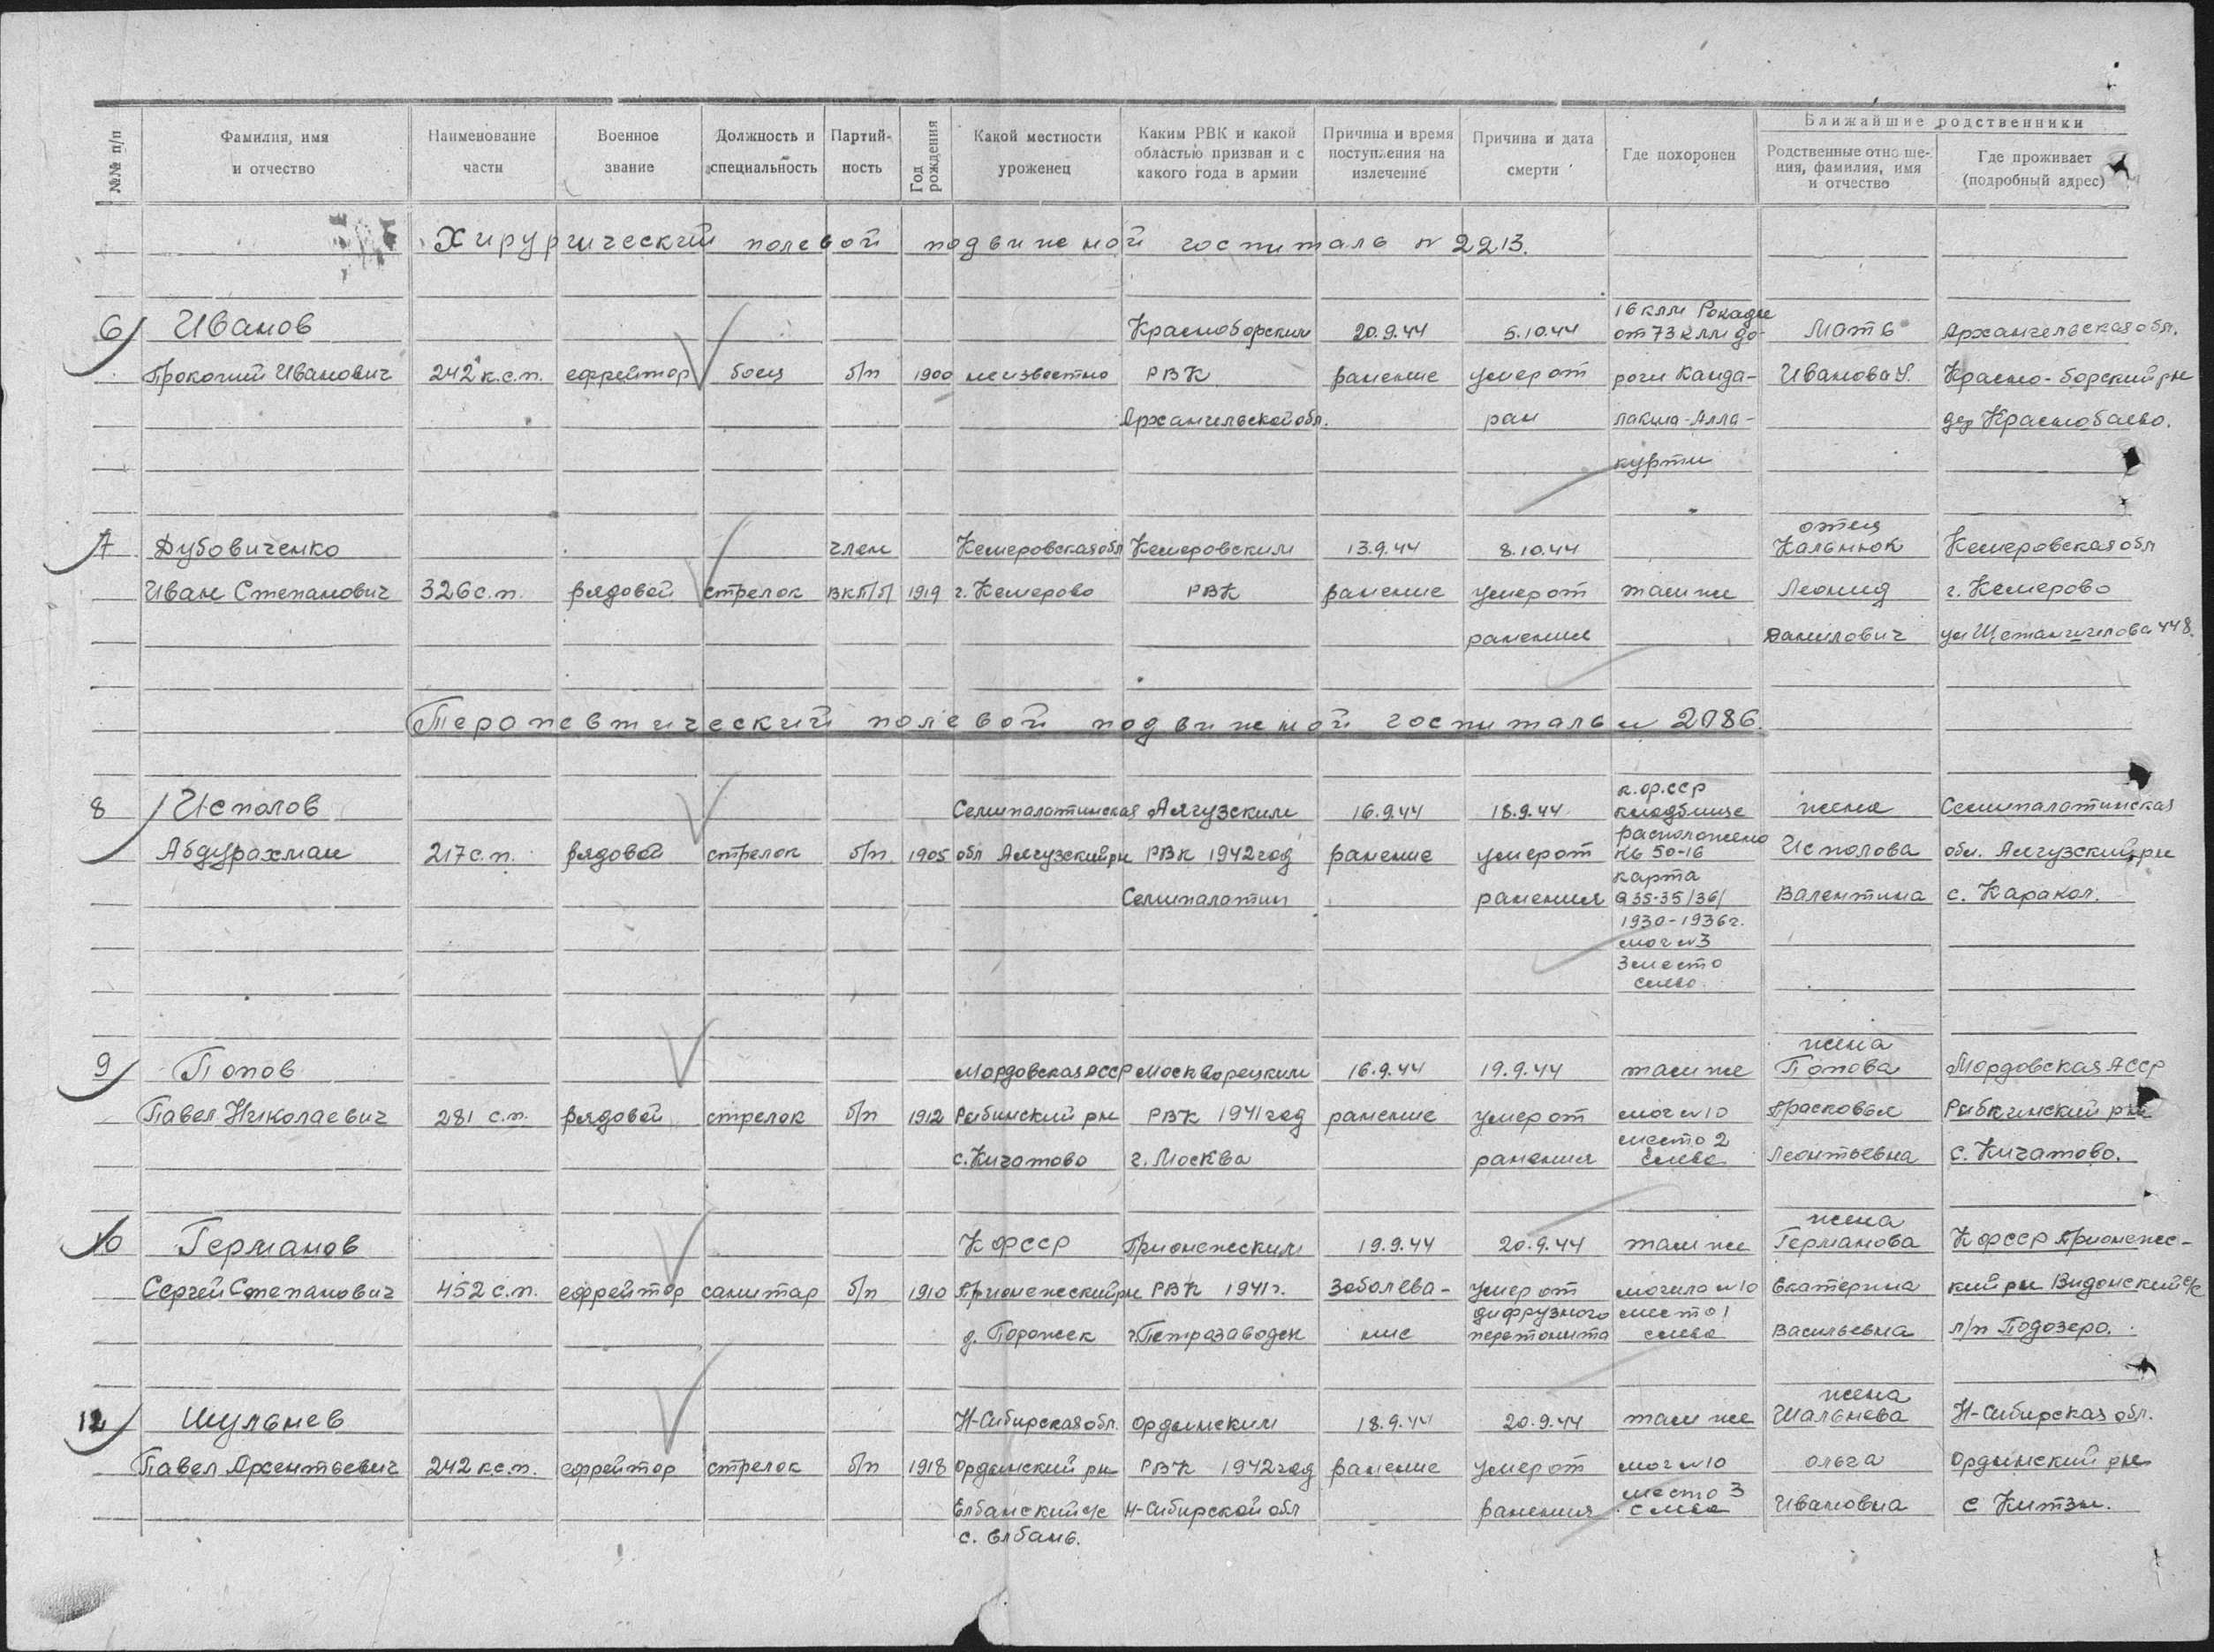 №№ п/п
Фамилия, имя и отчество
Наименование части
Военное звание
Должность и специальность
Партий-ность
Год рождения
Какой местности уроженец
Каким РВК и какой областью призван и с какого года в армии
Причина и время поступления на излечение
Причина и дата смерти
Где похоронен
Ближайшие родственники
Родственные отноше-ния, фамилия, имя и отчество
Где проживает (подробный адрес)
Хирургический полевой подвижной госпиталь № 2213.
16 клм Рокады
6 Иванов Красноборским 20.9.44 5.10.44 от 73 клм до- Мать Архангельская обл.
Прокопий Иванович 242 к.с.п. ефрейтор боец б/п 1900 неизвестно РВК ранение умер от роги Канда- Иванова У. Красно-борский рн
Архангельской обл. ран лакша-Алла- дер Краснобаево.
куртти
отец
7 Дубовиченко член Кемеровская обл Кемеровским 13.9.44 8.10.44 Кальнюк Кемеровская обл
Иван Степанович 326 с.п. рядовой стрелок ВКП/П 1919 г. Кемерово РВК ранение умер от там же Леонид г. Кемерово
ранения Данилович 448.
Теропевтический полевой подвижной госпиталь № 2086.
к.ф.сср
8 Исполов Семипалатинская Аягузским 16.9.44 18.9.44 кладбище жена Семипалатинская
расположено
Абдурахман 217 с.п. рядовой стрелок б/п 1905 обл Аягузский рн РВК 1942 год ранение умер от кв 50-16 Исполова обл. Аягузский рн
карта
Семипалатин ранения Q 35-35/36/ Валентина с. Каракол.
1930-1936 г.
мог № 3
3 место
слево
жена
9 Попов Мордовская АССР Москворецким 16.9.44 19.9.44 там же Попова Мордовская АССР
Павел Николаевич 281 с.п. рядовой стрелок б/п 1912 Рыбинский рн РВК 1941 год ранение умер от мог № 10 Прасковья Рыбкинский рн
место 2
с. Кичатово г. Москва ранения слева Леонтьевна с. Кичатово.
жена
10 Германов К ФССР Прионежским 19.9.44 20.9.44 там же Германова К ФССР Прионежс-
Сергей Степанович 452 с.п. ефрейтор санитар б/п 1910 Прионежский рн РВК 1941 г. Заболева- умер от могила № 10 Екатерина кий рн Видонский с/с
дифрузного место 1
д. Порожек г. Петрозаводск ние перетонита слева Васильевна л/п Подозеро.
жена
12 Шульнев Н-Сибирская обл. Ордынским 18.9.44 20.9.44 там же Шальнева Н-Сибирская обл.
Павел Арсентьевич 242 к с.п. ефрейтор стрелок б/п 1918 Ордынский рн РВК 1942 год ранение умер от мог № 10 Ольга Ордынский рн
место 3
Елбанский с/с Н-Сибирской обл ранения слева Ивановна с
с. Елбань.